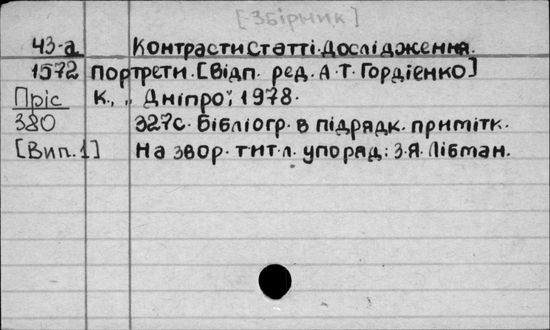 [Збірник]
43-а Контрасти Статті. Дослідження.
1572 Портрети. [Відп. ред. А.Т. Гордієнко]
Пріс К., „Дніпро", 1978.
380 327с. Бібліогр. в підрядк. примітк.
[Вип.1] На звор. тит л. упоряд: З.Я. Лібман.